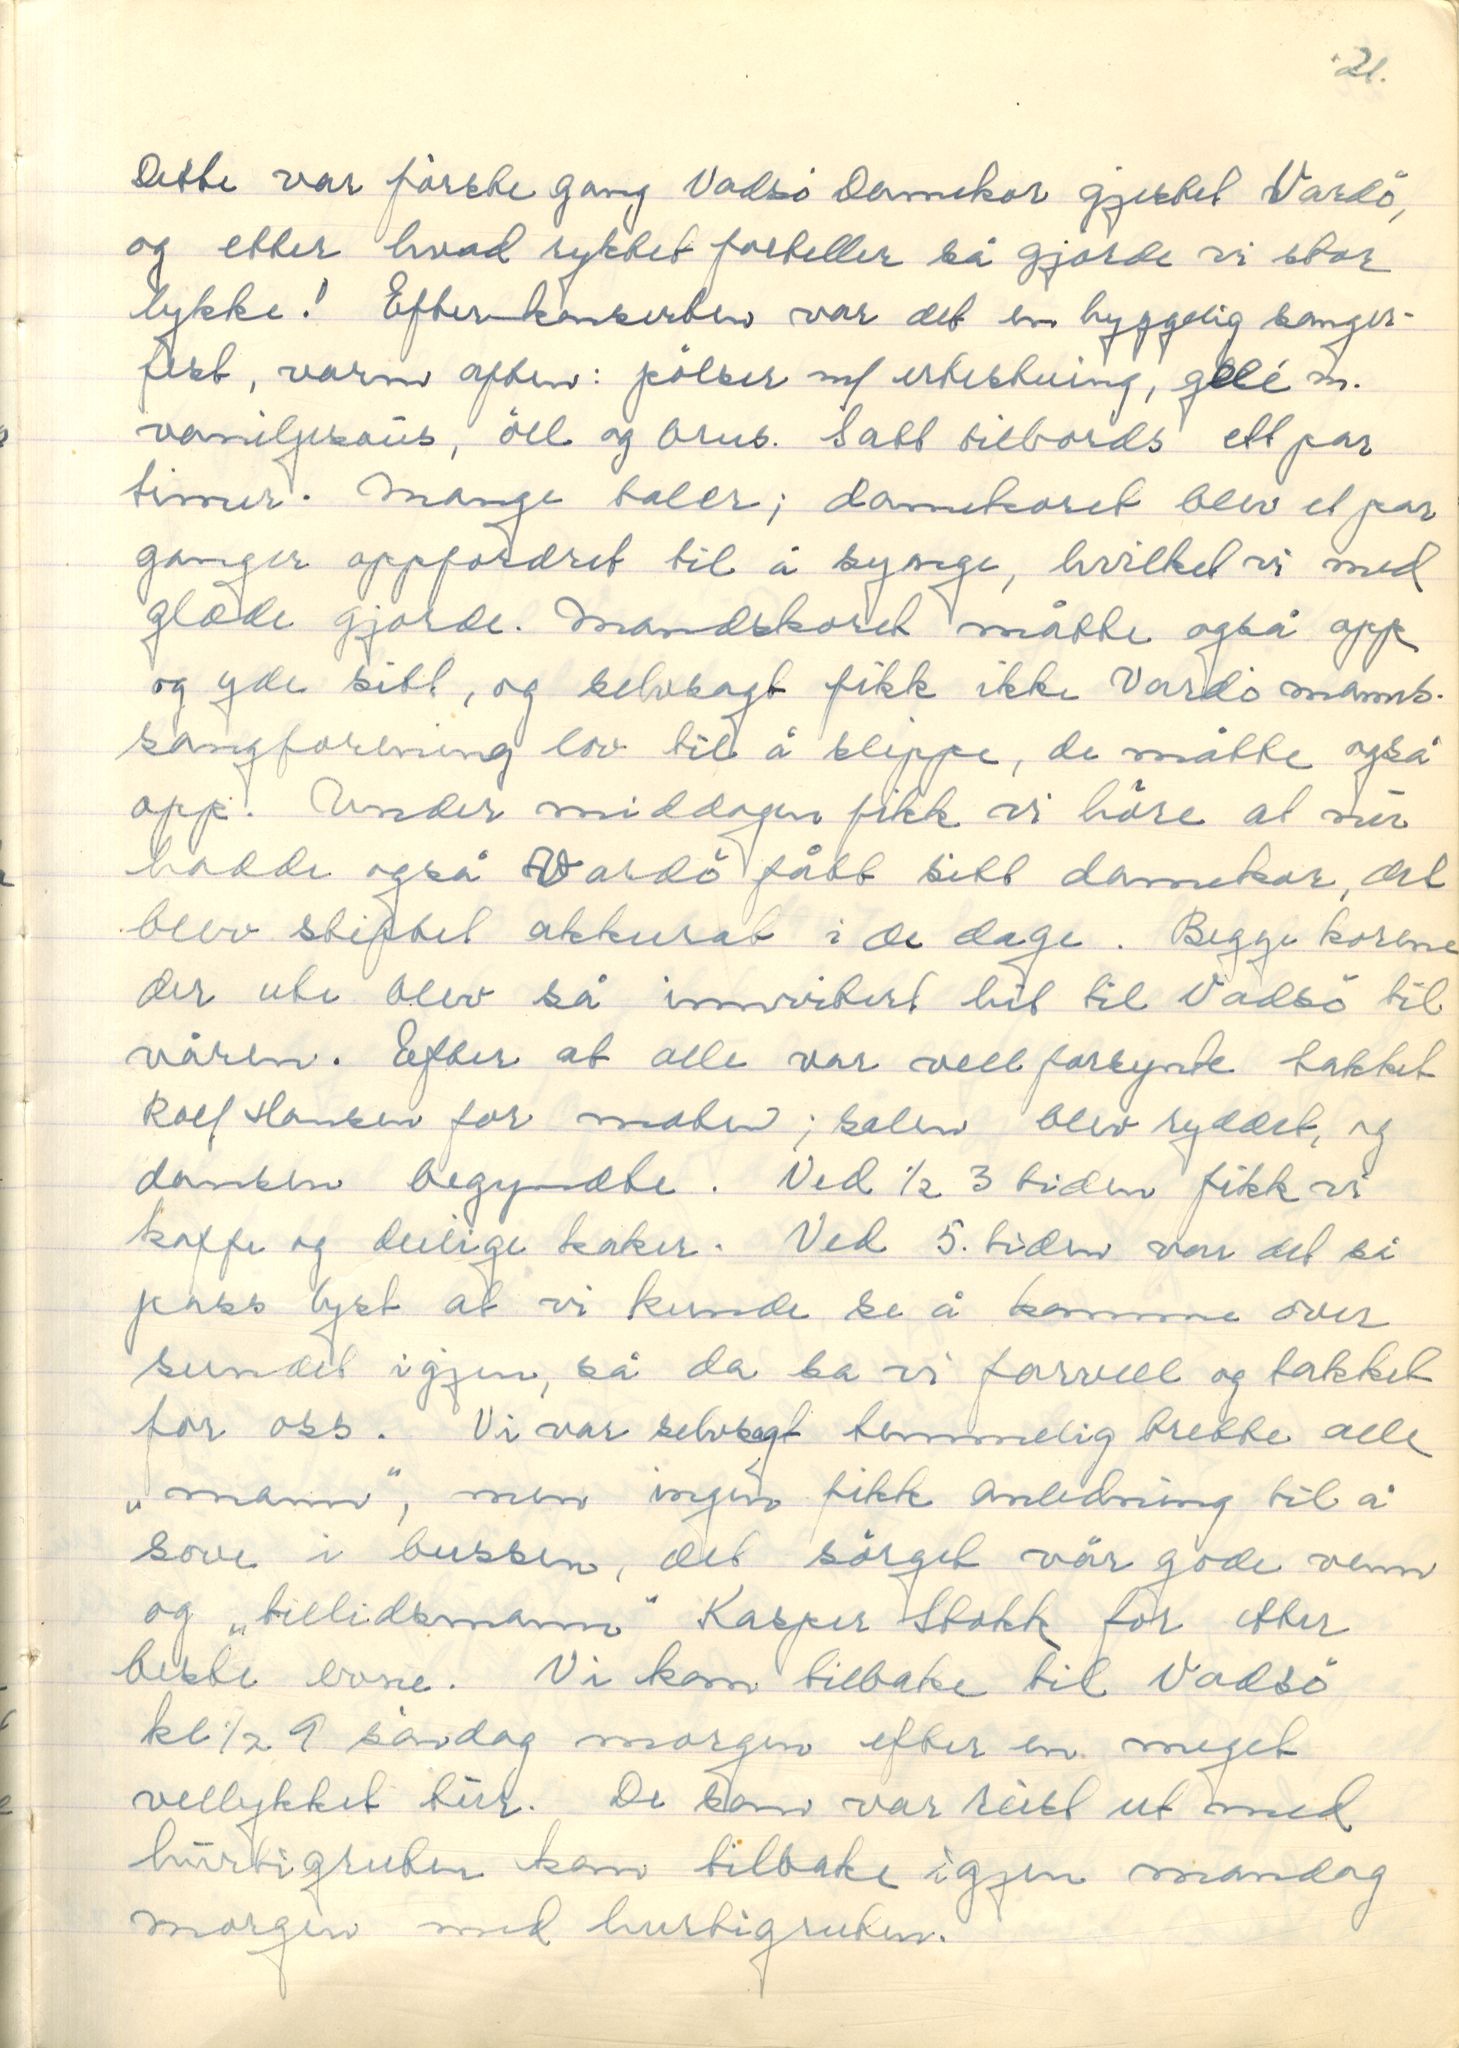 21.
Dette var förste gang Vadsö Damekor gjestet Vardö,
og etter hvad ryktet forteller så gjorde vi stor
lykke! Efter konserten var det en hyggelig sanger-
fest, varm aften: pölser m/ ertestuing, gelé m.
vaniljesaus, öll og brus. Satt tilbords ett par
timer. Mange taler; damekoret blev et par
ganger oppfordret til å synge, hvilket vi med
glæde gjorde. Mandskoret måtte også opp
og yde sitt, og selvsagt fikk ikke Vardö manns-
sangforening lov til å slippe, de måtte også
opp. Under middagen fikk vi höre at nu
hadde også Vardö fått sitt damekor, det
blev stiftet akkurat i de dage. Begge korene
der ute blev så innvitert hit til Vadsö til
våren. Efter at alle var vell forsynte takket
Rolf Hansen for maten; salen blev ryddet, og
dansen begyndte. Ved 1/2 3 tiden fikk vi
kaffe og deilige kaker. Ved 5. tiden var det så
pass lyst at vi kunde se å komme over
sundet igjen, så da sa vi farvell og takket
for oss. Vi var selvsagt temmelig trette alle
„mann“, men ingen fikk anledning til å
sove i bussen, det sörget vår gode venn
og „tillidsmann“ Kasper Stokk for etter
beste evne. Vi kom tilbake til Vadsö
kl 1/2 9 söndag morgen efter en meget
vellykket tur. De som var reist ut med
hurtigruten kom tilbake igjen mandag
morgen med hurtigruten.